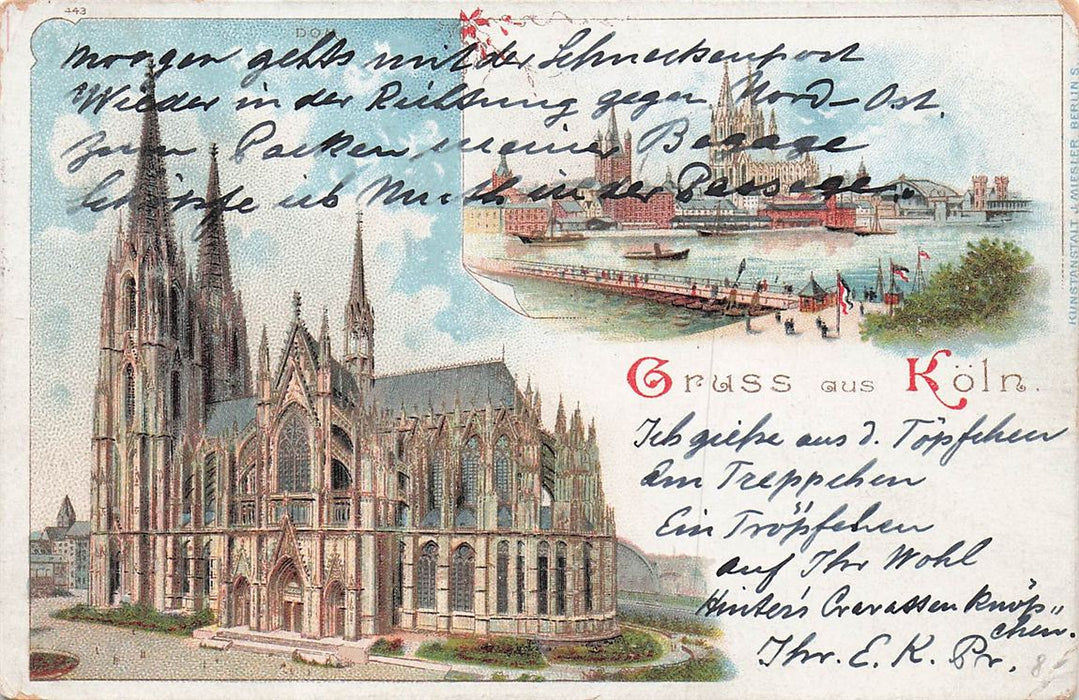 443
DOM
Morgen gehts mit der Schneckenpost
Wieder in der Richtung gegen Nord-Ost.
Zum Packen meiner Bagage
Schöpfe ich Muth in der Passage.
Gruss aus Köln.
Ich gieße aus d. Töpfchen
Am Treppchen
Ein Tröpfchen
auf Ihr Wohl
Hinter's Cravatten Knöpf„
chen.
Ihr. E. K. Pr.
KUNSTANSTALT J. MIESLER, BERLIN S.